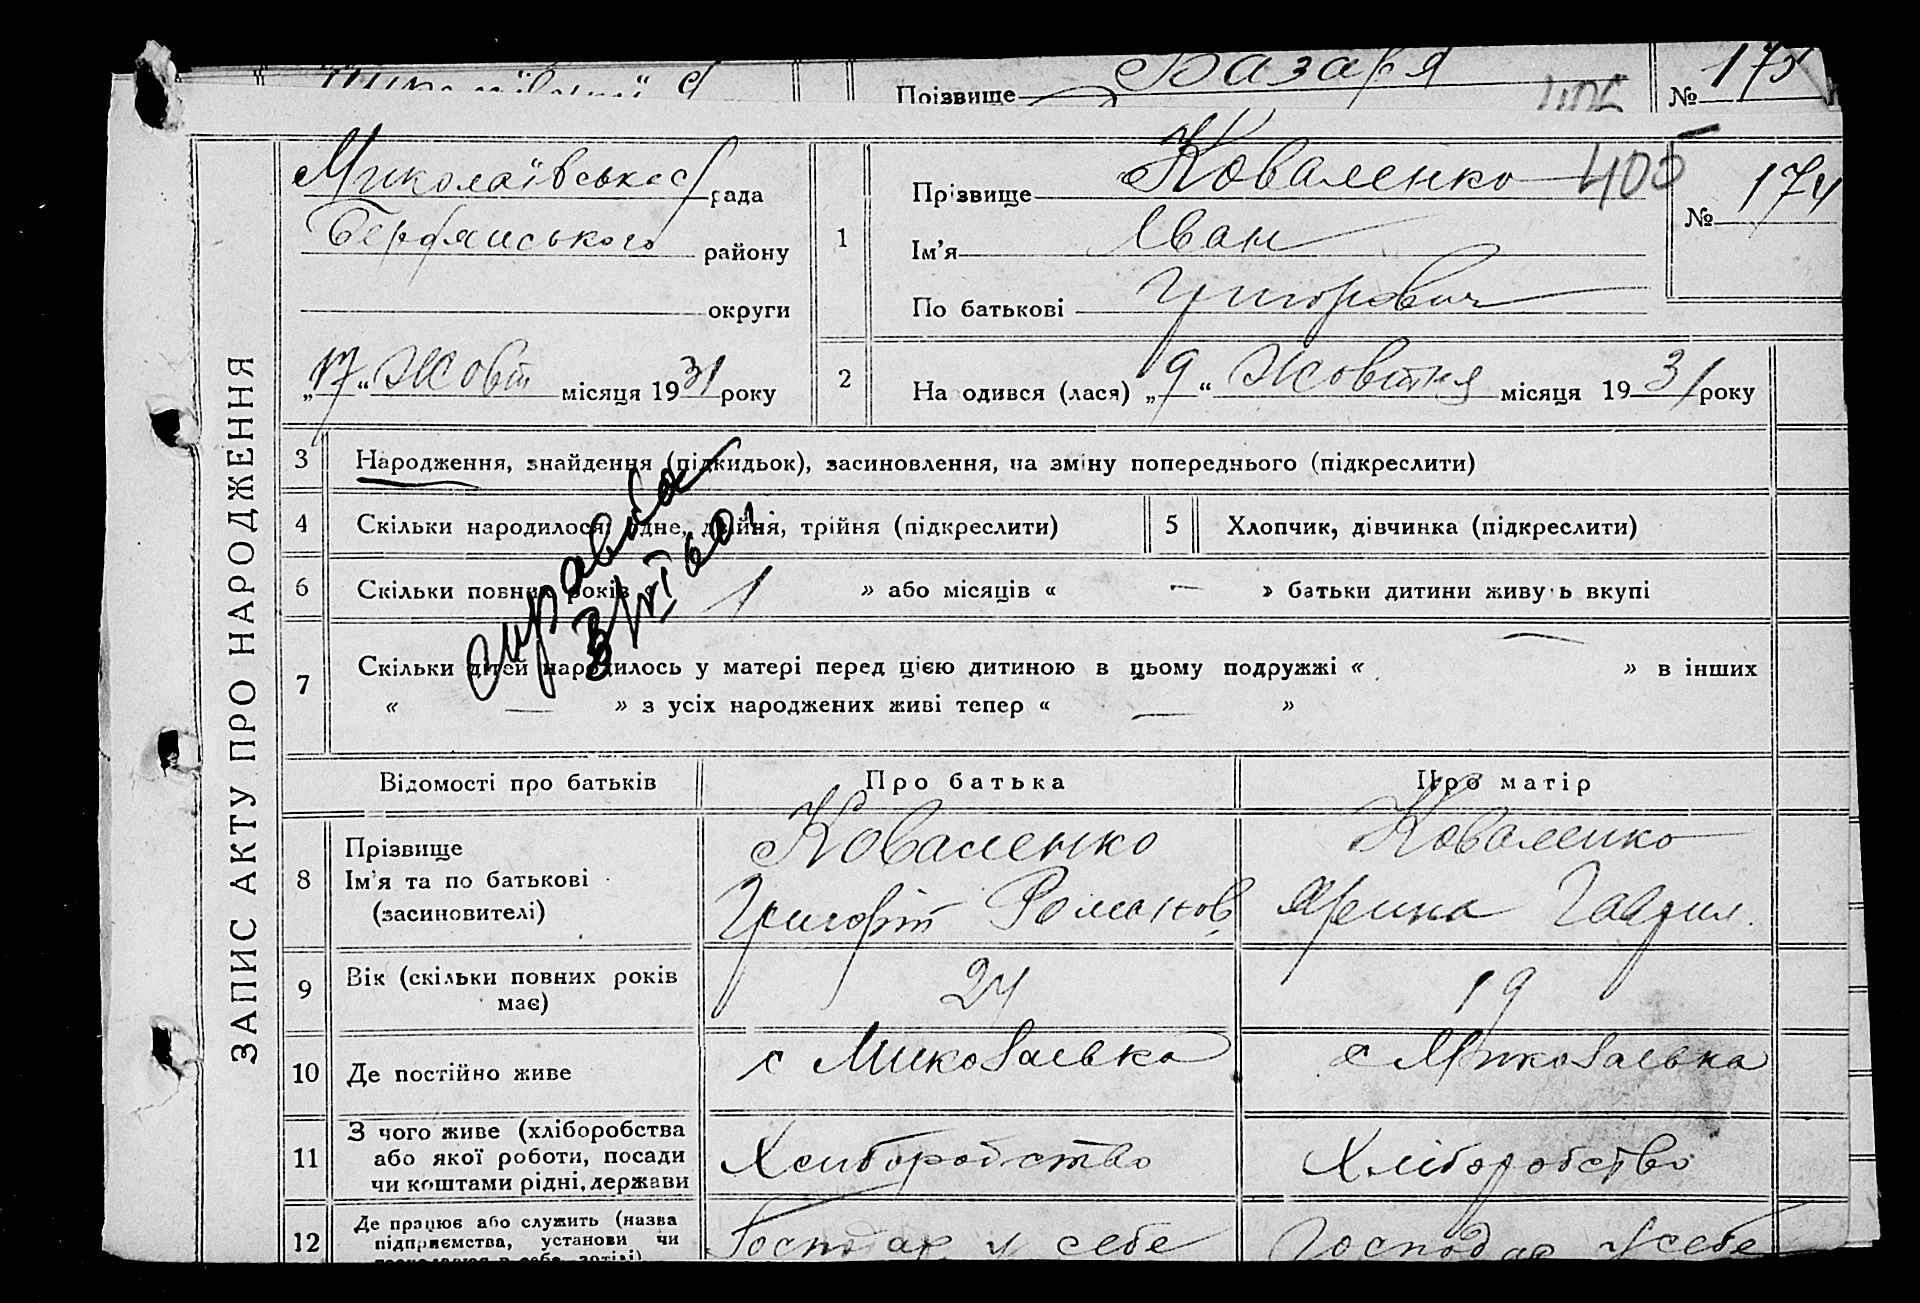 Прізвище Базаря № 175
ЗАПИС АКТУ ПРО НАРОДЖЕННЯ
Миколаївська с/рада
Бердянського району
округи
„17“ Жовт місяця 1931 року
1
Прізвище Коваленко
405
№ 174
Ім'я Іван
По батькові Григорович
2
На одився (лася) „9“ Жовтня місяця 1931 року
3 Народження, знайдення (підкидьок), засиновлення, на зміну попереднього (підкреслити)
4 Скільки народилося: одне, двійня, трійня (підкреслити)
5 Хлопчик, дівчинка (підкреслити)
6 Скільки повних років « 1 » або місяців « — » батьки дитини живу ь вкупі
справка
7 Скільки дітей народилось у матері перед цією дитиною в цьому подружжі « — » в інших
« — » з усіх народжених живі тепер « — »
Відомості про батьків Про батька Про матір
8 Прізвище
Ім'я та по батькові
(засиновителі)
Коваленко
Григорій Романов
Коваленко
Ярина Гаврил.
9 Вік (скільки повних років
має)
24
19
10 Де постійно живе
с Миколаевка
с Миколаевка
11 З чого живе (хліборобства
або якої роботи, посади
чи коштами рідні, держави
Хлиборобство
Хліборобство
12 Де працює або служить (назва
підприємства, установи чи
Господар у себе
Господар у себе